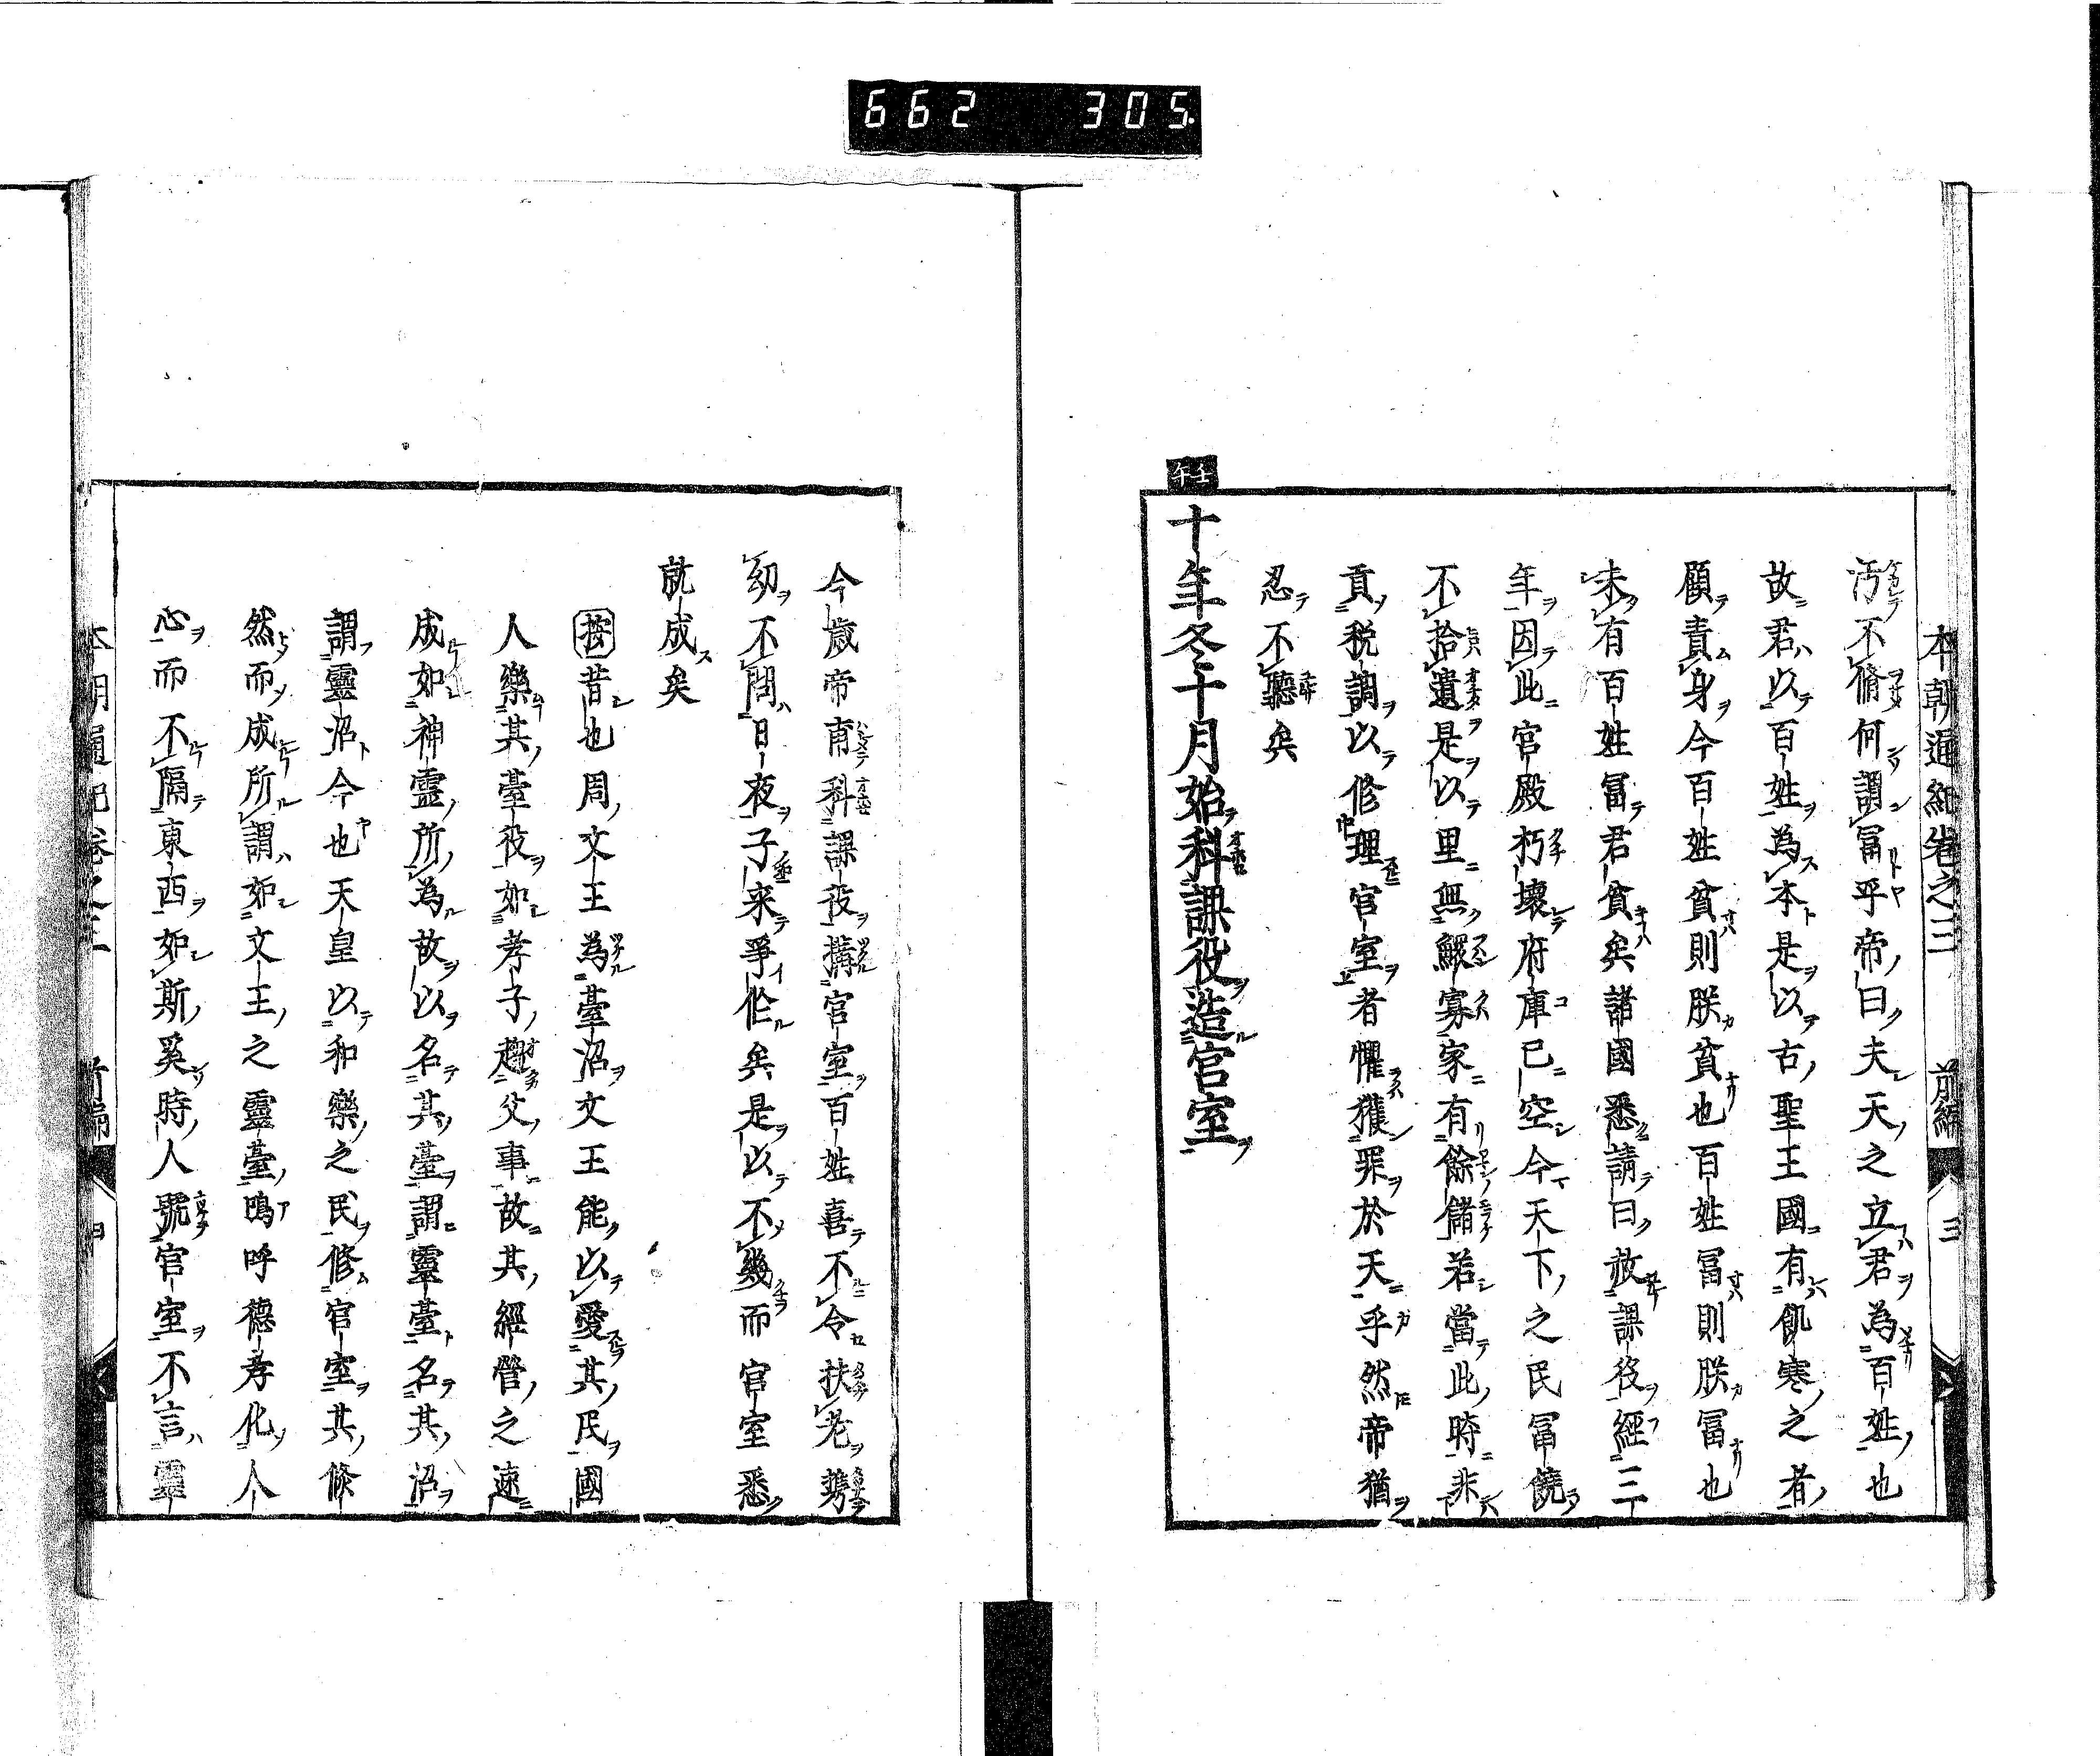 662 305
本朝通紀卷之三 前編 三
汚不脩何謂冨乎帝曰夫天之立君為百姓也
故君以百姓為本是以古聖王國有飢寒之者
顧責身今百姓貧則朕貧也百姓冨則朕冨也
未有百姓冨君貧矣諸國悉請曰赦課役經三
年因此官殿朽壊府庫已空今天下之民冨饒
不拾遺是以里無鰥寡家有餘儲若當此時非
貢税調以修理官室者懼獲罪於天乎然帝猶
忍不聽矣
壬午
十年冬十月始科課役造官室
今歳帝甫科課役搆宮室百姓喜不令扶老携
幼不問日夜子来爭作矣是以不幾而官室悉
就成矣
按昔也周文王為臺沼文王能以愛其民國
人樂其臺役如孝子趣父事故其經營之速
成如神靈所為故以名其臺謂靈臺名其沼
謂靈沼今也天皇以和樂之民修官室其條
然而成所謂如文王之靈臺嗚呼德孝化人
心而不隔東西如斯奚時人號官室不言靈
本朝通紀卷之三 前編 四